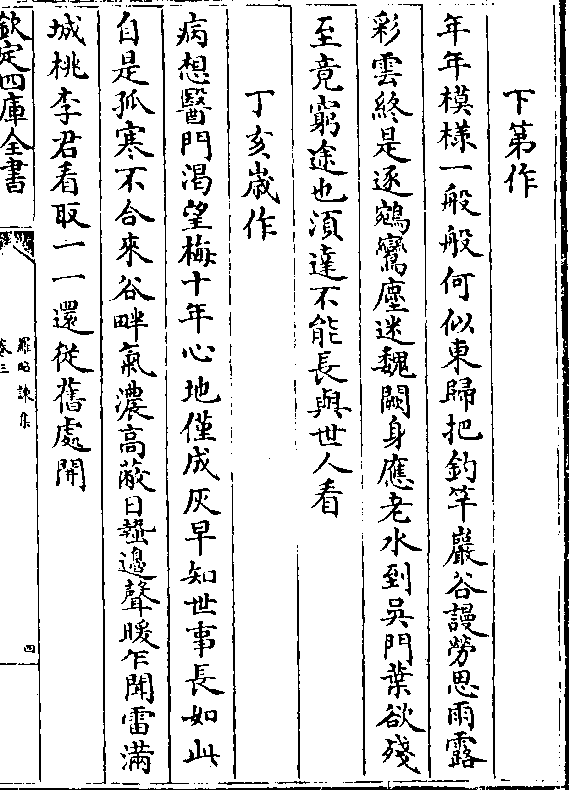 下第作
年年模様一般般何似東歸把釣竿巖谷謾勞思雨露
彩雲終是逐鵷鸞塵迷魏闕身應老水到吳門葉欲殘
至竟窮途也須達不能長與世人看
丁亥歲作
病想醫門渴望梅十年心地僅成灰早知世事長如此
自是孤寒不合來谷畔氣濃高蔽日蟄邉聲暖乍聞雷滿
城桃李君看取一一還從舊處開
欽定四庫全書
羅昭諫集
卷三
四